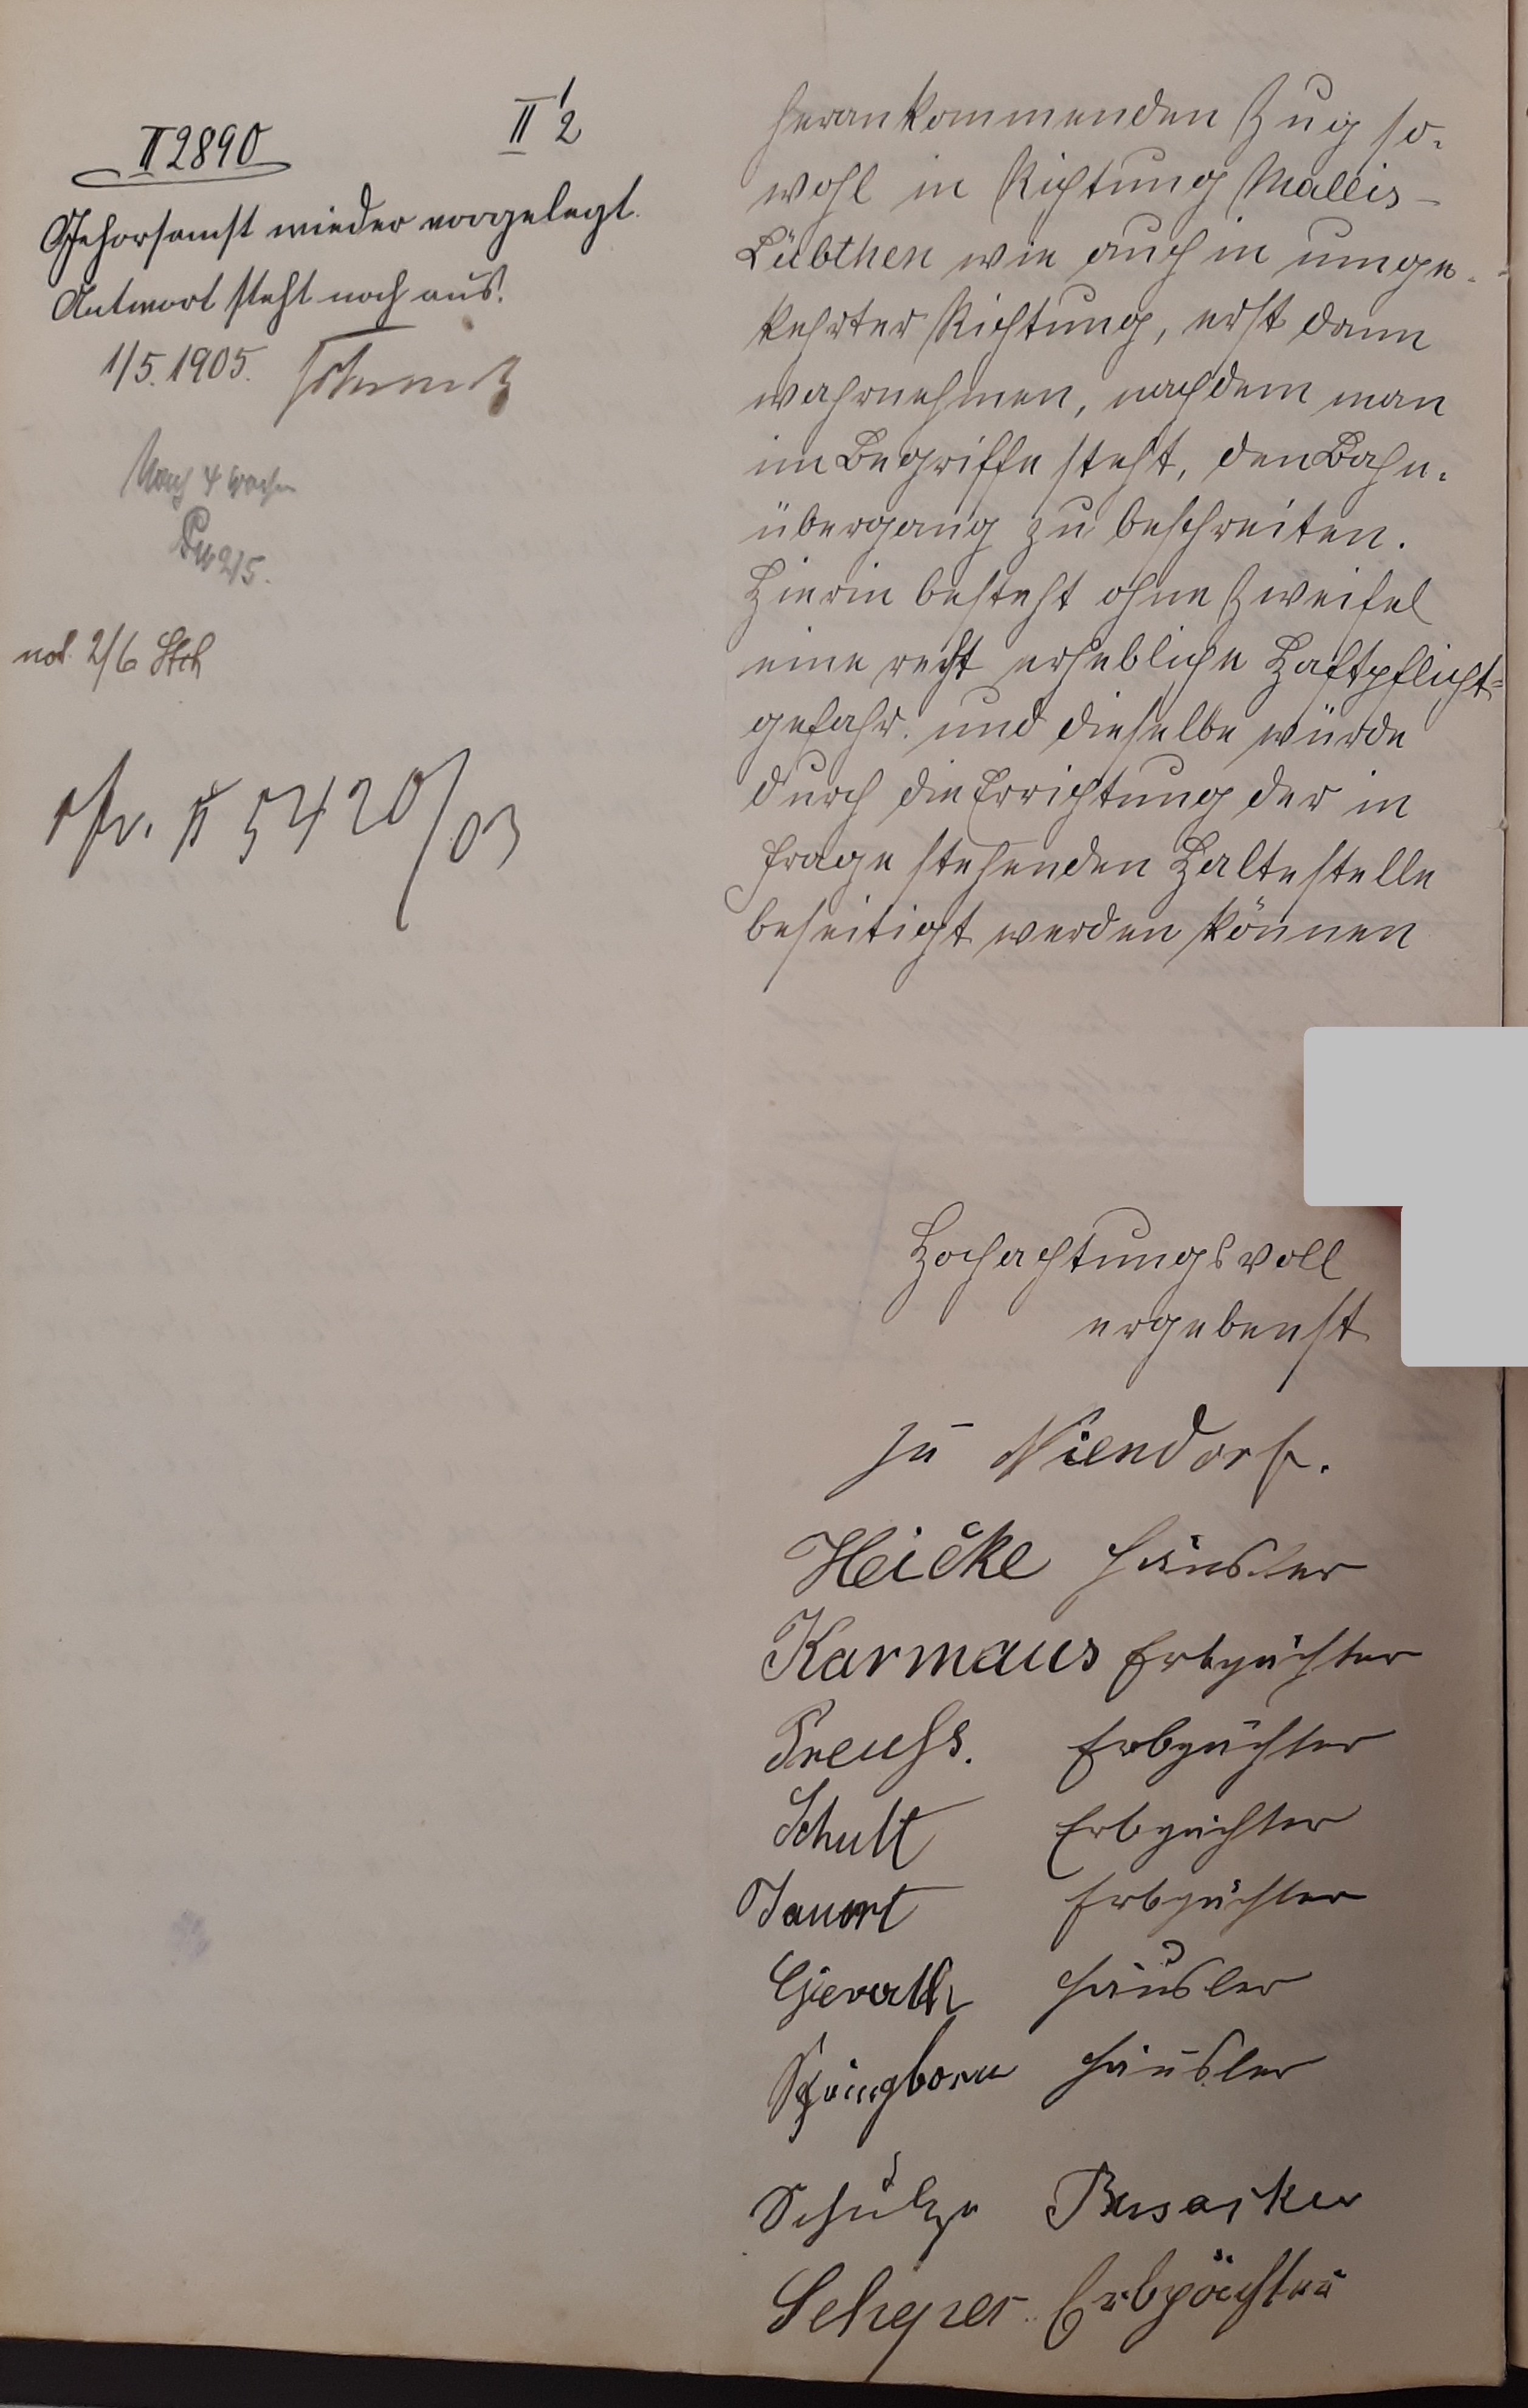 II 2890
II 1/2
Gehorsamst wieder vorgelegt.
Antwort steht noch aus.
1/5. 1905.
Nach 4 Wochen
2/5.
not. 2/6
cfr. II 5420/03
herankommenden Zug so-
wohl in Richtung Malliß-
Lübtheen wie auch in umge-
kehrter Richtung, erst dann
wahrnehmen, nachdem man
im Begriffe steht, den Bahn-
übergang zu beschreiten.
Hierin besteht ohne Zweifel
eine recht erhebliche Haftpflicht-
gefahr. und dieselbe würde
durch die Errichtung der in
Frage stehenden Haltestelle
beseitigt werden können
Hochachtungsvoll
ergebenst
zu Niendorf.
Heicke Häusler
Karmaus Erbpächter
Preuss. Erbpächter
Schult Erbpächter
Erbpächter
Häusler
Springborn Häusler
Schulze
Erbpächter